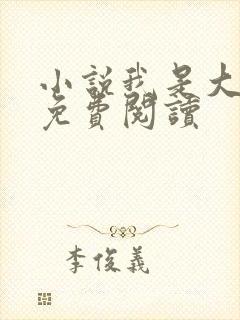 小說我是大
免費閱讀
李俊義